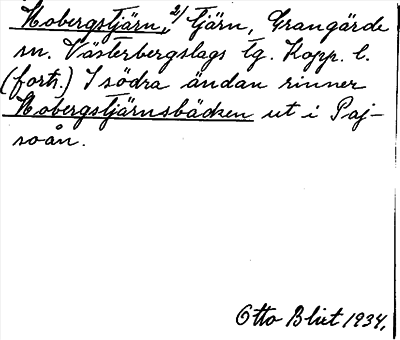 Kobergstjärn, 2) tjärn, Grangärde
sn. Västerbergslags tg. Kopp. l.
(forts.) I södra ändan rinner
Kobergstjärnsbäcken ut i Paj-
soån.
Otto Blixt 1934.